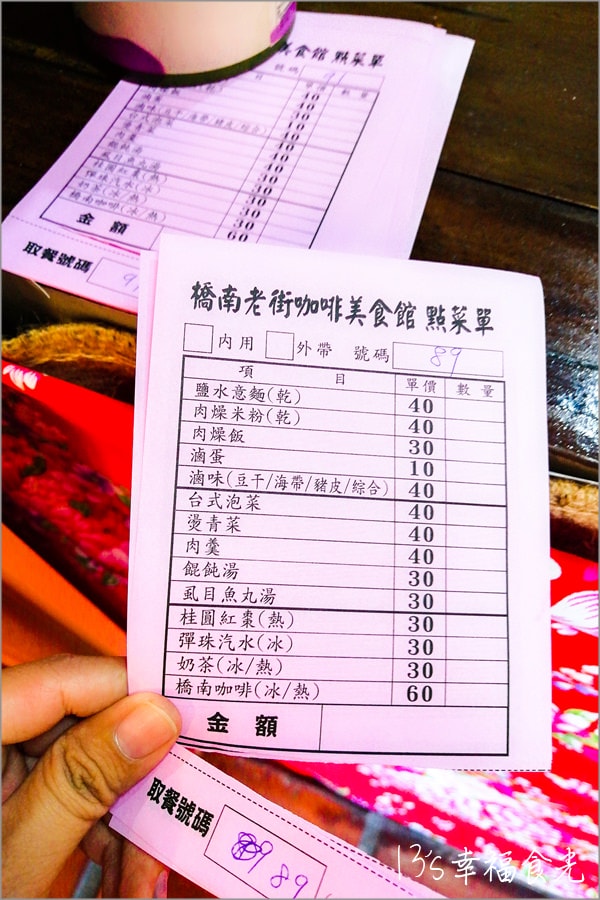 美食館 點菜單
號碼
單價 數量
40
40
30
10
40
40
40
40
30
30
奶茶(冰/熱) 30
橋南咖啡(冰/熱) 60
金額
取餐號碼
橋南老街咖啡美食館 點菜單
內用 外帶 號碼 89
項目 單價 數量
鹽水意麵(乾) 40
肉燥米粉(乾) 40
肉燥飯 30
滷蛋 10
滷味(豆干/海帶/豬皮/綜合) 40
台式泡菜 40
燙青菜 40
肉羹 40
餛飩湯 30
虱目魚丸湯 30
桂圓紅棗(熱) 30
彈珠汽水(冰) 30
奶茶(冰/熱) 30
橋南咖啡(冰/熱) 60
金額
取餐號碼 89
13's幸福食光